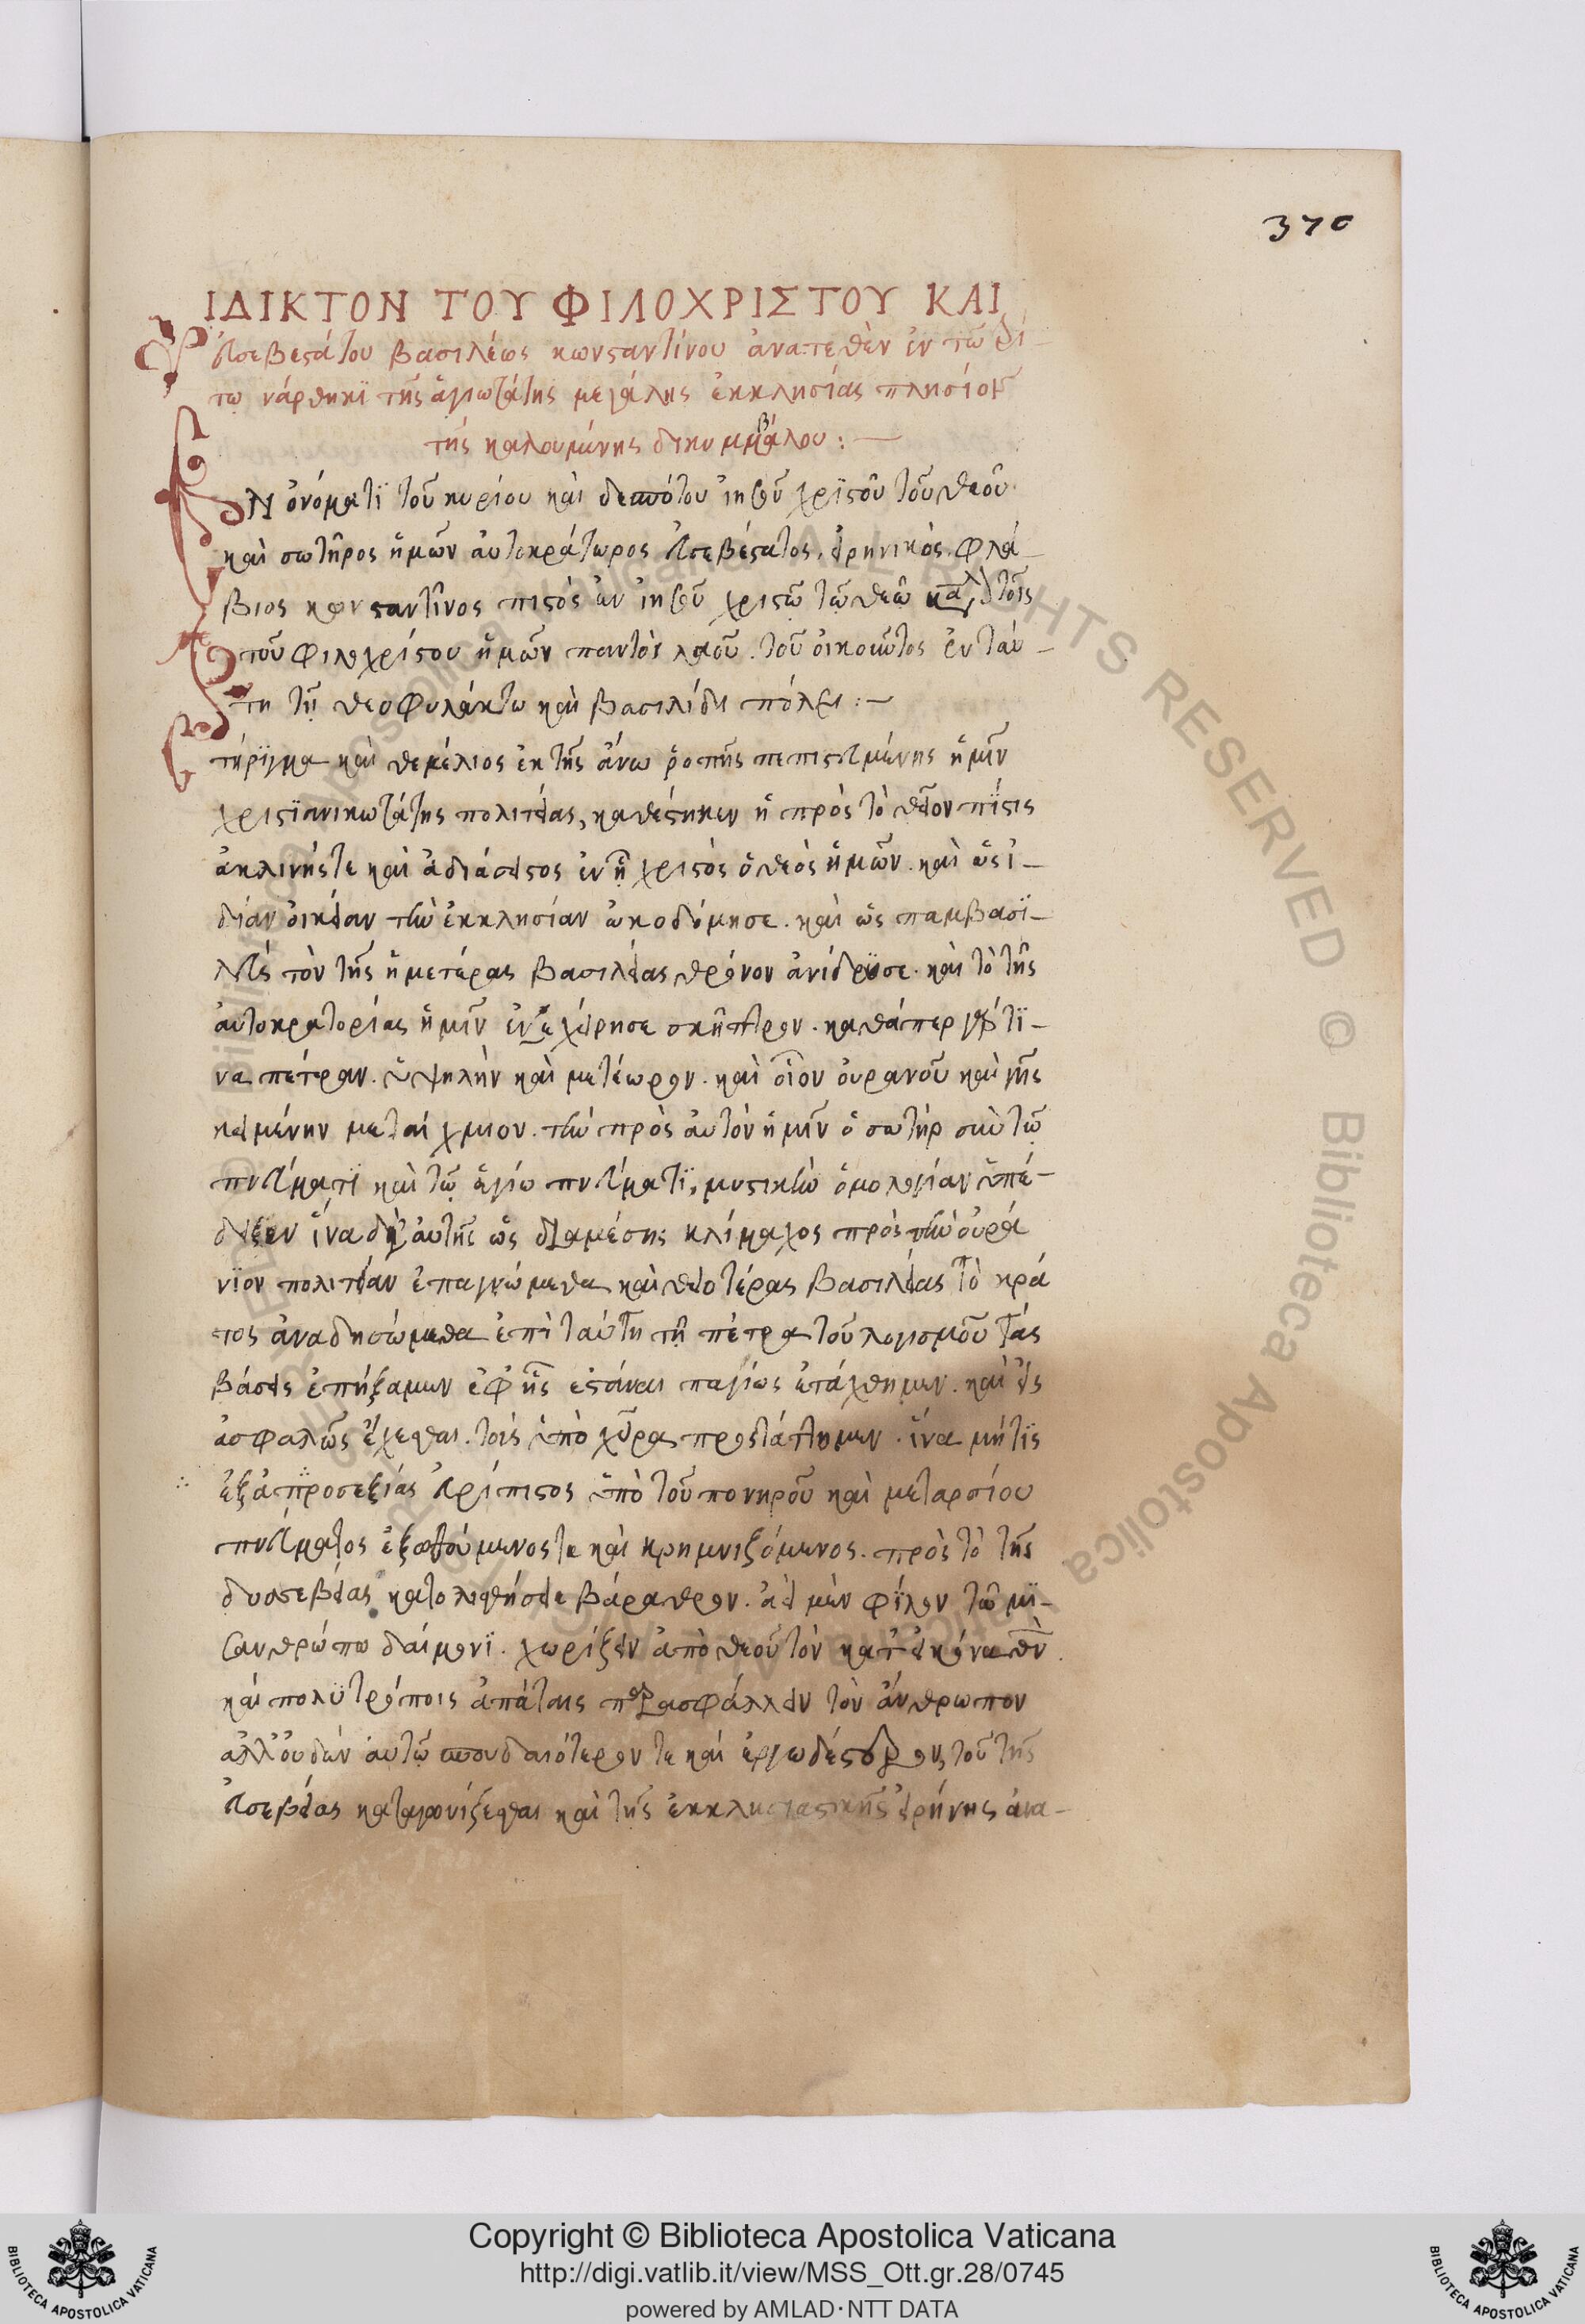 370
ΙΔΙΚΤΟΝ ΤΟΥ ΦΙΛΟΧΡΙΣΤΟΥ ΚΑΙ
εὐσεβεστάτου βασιλέως κωνσταντίνου ἀνατεθὲν ἐν τῶ τρί-
τω νάρθηκϊ τῆς ἁγιωτάτης μεγάλης ἐκκλησίας πλησίον
τῆς καλουμένης δικυμβάλου:—
ΕΝ ὀνόματϊ τοῦ κυρίου καὶ δεσπότου ἰησοῦ χρϊστοῦ τοῦ θεοῦ
καὶ σωτῆρος ἡμῶν ἀυτοκράτωρος εὐσεβέστατος. εἰρηνικὸς. φλά-
βιος κωνσταντῖνος πιστὸς ἐν ἰησοῦ χριστῶ τῶ θεῶ τοῖς
τοῦ φιλοχρίστου ἡμῶν παντὸς λαοῦ. τοῦ οἰκοῦντος ἐν ταύ-
τη τῆ θεοφυλάκτω καὶ βασιλίδι πόλει:—
τήρϊγμα καὶ θεμέλιος ἐκ τῆς ἄνω ῥοπῆς πεπιστευμένης ἡμῖν
χριστϊανικωτάτης πολιτείας, καθέστηκεν ἡ πρὸς τὸ θεῖον πίστις
ἀκλινής τε καὶ ἀδιάσειστος ἐν ἧ χριστὸς ὁ θεὸς ἡμῶν. καὶ ὡς ἰ-
δίαν ὀικείαν τὴν ἐκκλησίαν ὠκοδόμησε. καὶ ὡς παμβασϊ-
λεὺς τὸν τῆς ἡμετέρας βασιλείας θρόνον ἀνίδρϋσε. καὶ τὸ τῆς
ἀυτοκρατορίας ἡμῖν ἐνεχείρησε σκῆπτρον. καθάπερ γάρ τϊ-
να πέτραν. ὑψηλὴν καὶ μετέωρον. καὶ οἷον ὀυρανοῦ καὶ γῆς
κειμένην μεταίχμιον. τὴν πρὸς ἀυτὸν ἡμῖν ὁ σωτὴρ σὺν τῶ
πνεύματϊ καὶ τῶ ἁγίω πνεύματϊ, μυστικὴν ὁμολογίαν ὑπέ-
δειξεν ἵνα δι ἀυτῆς ὡς διαμέσης κλίμακος πρὸς τὴν ὀυρά
νϊον πολιτείαν ἐπαγώμεθα καὶ θειοτέρας βασιλείας τὸ κρά
τος ἀναδησώμεθα ἐπὶ ταύτη τῆ πέτρα τοῦ λογισμοῦ τάς
βάσεις ἐπήξαμεν ἐφ ἧς ἑστάναι παγίως ἐτάχθημεν. καὶ εἰς
ἀσφαλῶς ἔχεσθαι. τοῖς ὑπὸ χεῖρα προστάττομεν. ἵνα μήτϊς
ἐξ ἀπροσεξίας εὐρίπιστος ὑπὸ τοῦ πονηροῦ καὶ μεταρσίου
πνεύματος ἐξωθούμενος τε καὶ κρημνιζόμενος. πρὸς τὸ τῆς
δυσσεβείας κατολισθήσειε βάραθρον. ἀεὶ μὲν φίλον τῶ μϊ-
σανθρώπω δαίμονϊ. χωρίζειν ἀπὸ θεοῦ τὸν κατ εἰκόνα θν.
καὶ πολϋτρόποις ἀπάταις παρασφάλλειν τὸν ἄνθρωπον
ἀλλ οὐδὲν ἀυτῶ σπουδαιότερον τε καὶ ἐργωδέστερον, τοῦ τῆς
εὐσεβείας καταγωνίζεσθαι καὶ τῆς ἐκκλησιαστικῆς εἰρήνης ἀνα-
Copyright © Biblioteca Apostolica Vaticana
http://digi.vatlib.it/view/MSS_Ott.gr.28/0745
powered by AMLAD·NTT DATA
BIBLIOTECA APOSTOLICA VATICANA
BIBLIOTECA APOSTOLICA VATICANA